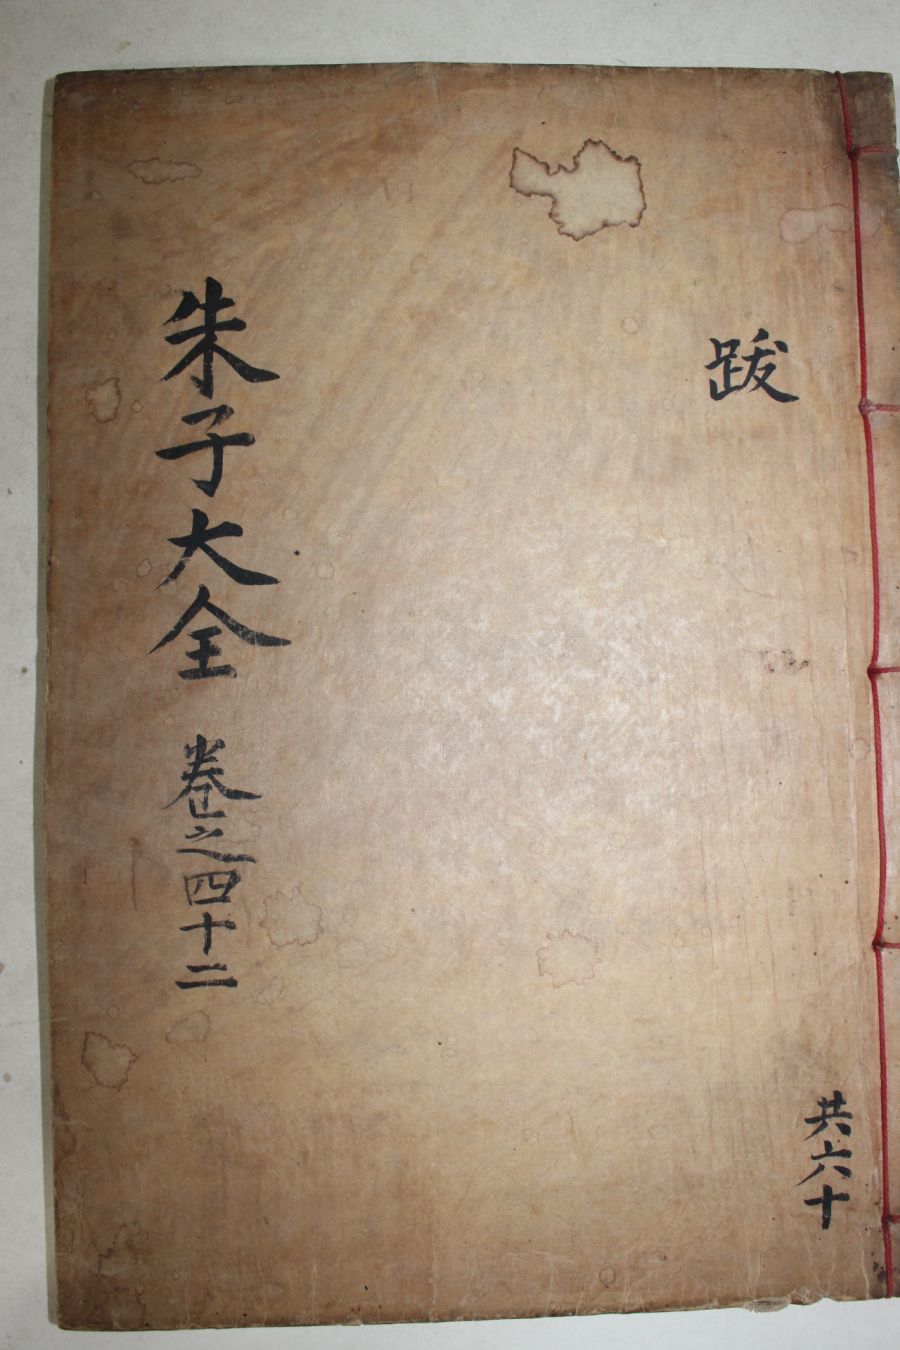 跋
共六十
朱子大全 卷之四十二